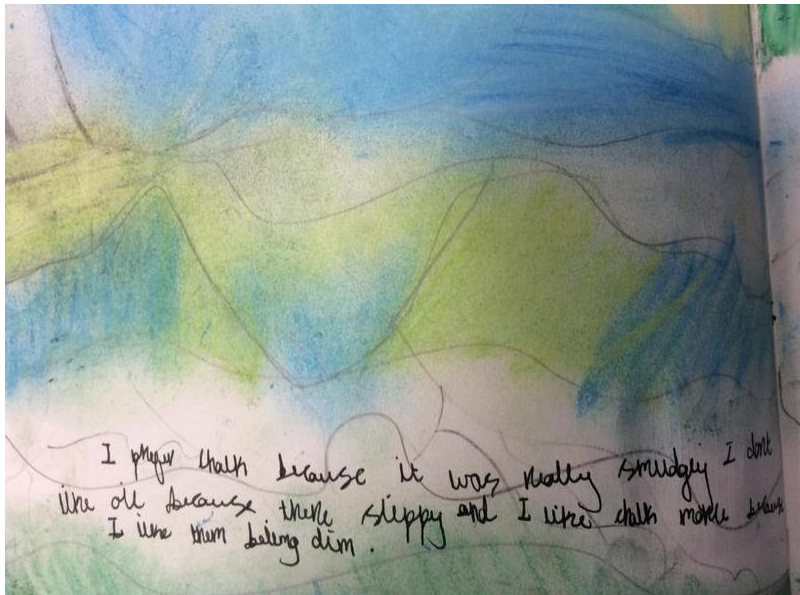 I prefer chalk because it was really smudgey I dont
like oil because there slippy and I like chalk more because
I like them being dim.